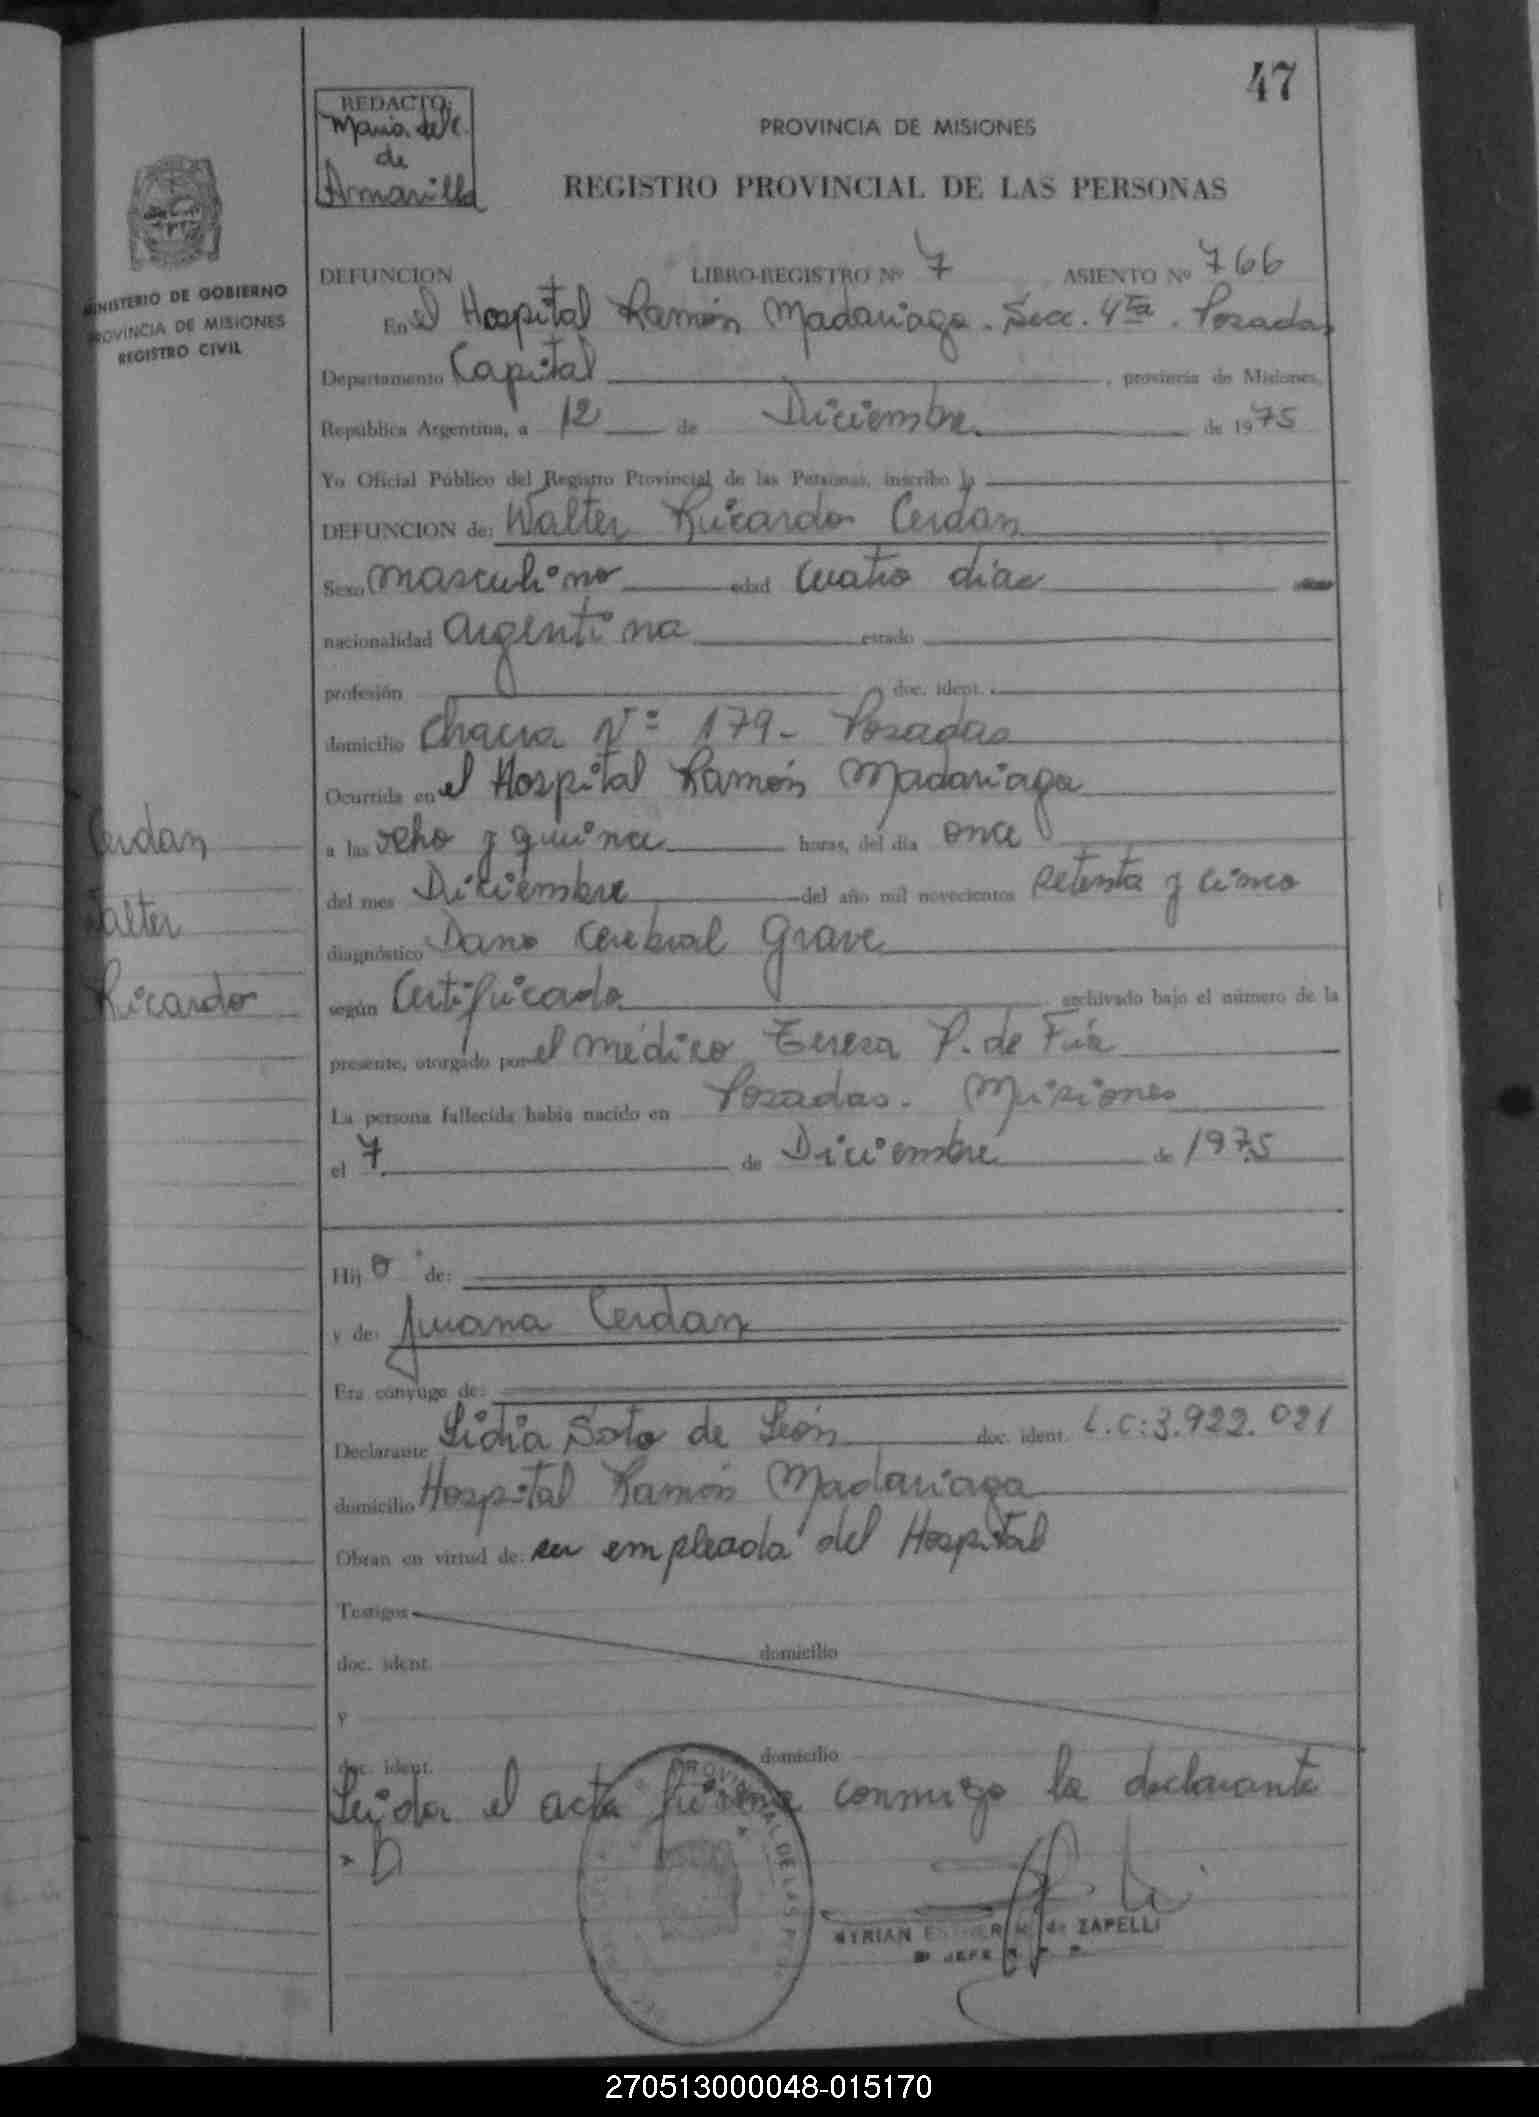 47
REDACTO:
Maria del C.
de
Amarilla
PROVINCIA DE MISIONES
REGISTRO PROVINCIAL DE LAS PERSONAS
MINISTERIO DE GOBIERNO
PROVINCIA DE MISIONES
REGISTRO CIVIL
DEFUNCION LIBRO-REGISTRO Nº 7 ASIENTO Nº 766
En el Hospital Ramón Madariaga. Secc. 4ta. Posadas
Departamento Capital, provincia de Misiones,
República Argentina, a 12 de Diciembre de 1975
Yo Oficial Público del Registro Provincial de las Personas, inscribo la
DEFUNCION de: Walter Ricardo Cerdan
Sexo masculino edad cuatro dias
nacionalidad argentina estado
profesión doc. ident.
domicilio Chacra Nº 179- Posadas
Ocurrida en el Hospital Ramón Madariaga
a las ocho y quince horas, del día once
del mes Diciembre del año mil novecientos setenta y cinco
diagnóstico Dano Cerebral Grave
según Certificado archivado bajo el número de la
presente, otorgado por el médico Teresa P. de
La persona fallecida había nacido en Posadas. Misiones
el 7 de Diciembre de 1975
Hijo de:
y de: Juana Cerdan
Era cónyuge de:
Declarante Lidia Soto de León doc. ident. L.C:3.922.021
domicilio Hospital Ramón Madariaga
Obran en virtud de: ser empleada del Hospital
Testigos
doc. ident. domicilio
y
doc. ident. domicilio
Leida el acta firma conmigo la declarante
PROVINCIAL DE LAS
MYRIAN ESTHER de ZAPELLI
JEFE
Cerdan
Walter
Ricardo
270513000048-015170